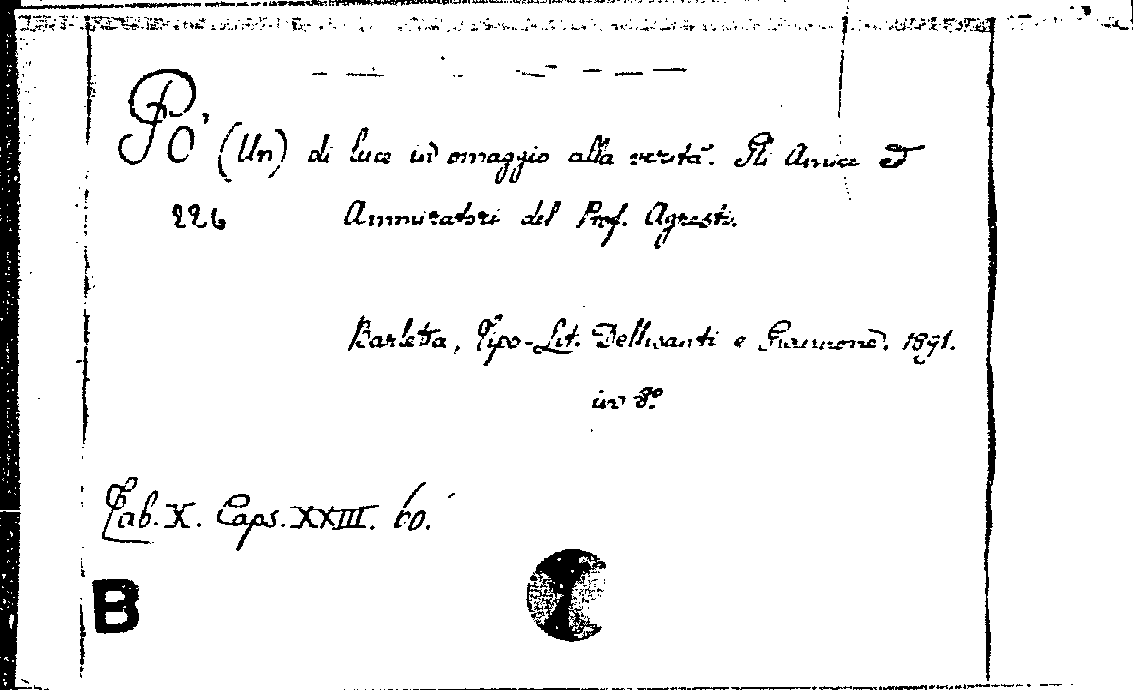 Po' (Un) di luce in omaggio alla verità. Gli Amici ed
226 Ammiratori del Prof. Agresti.
Barletta, Tipo-Lit. Dellisanti e Giannone. 1891.
in 8°
Tab. X. Caps. XXIII. 60.
B